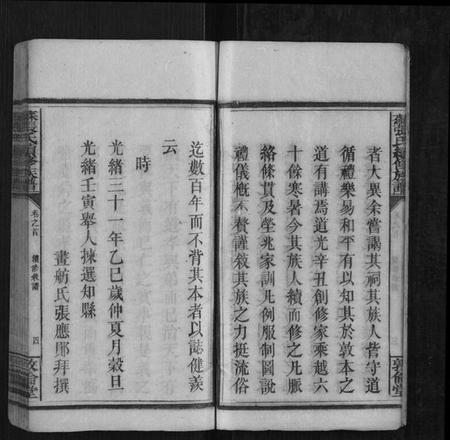 者大異余嘗謁其祠其族人皆守道
循禮樂易和平有以知其於敦本之
道有講焉道光辛丑創修家乘越六
十餘寒暑今其族人續而修之凡脈
絡條貫及塋兆家訓凡例服制圖說
禮儀概不贅謹敘其族之力挺流俗
迄數百年而不背其本者以誌健羨
云
時
光緒三十一年乙巳歲仲夏月穀旦
光緒壬寅舉人揀選知縣
畫舫氏張應鄏拜撰
卷之首
四
敦倫堂